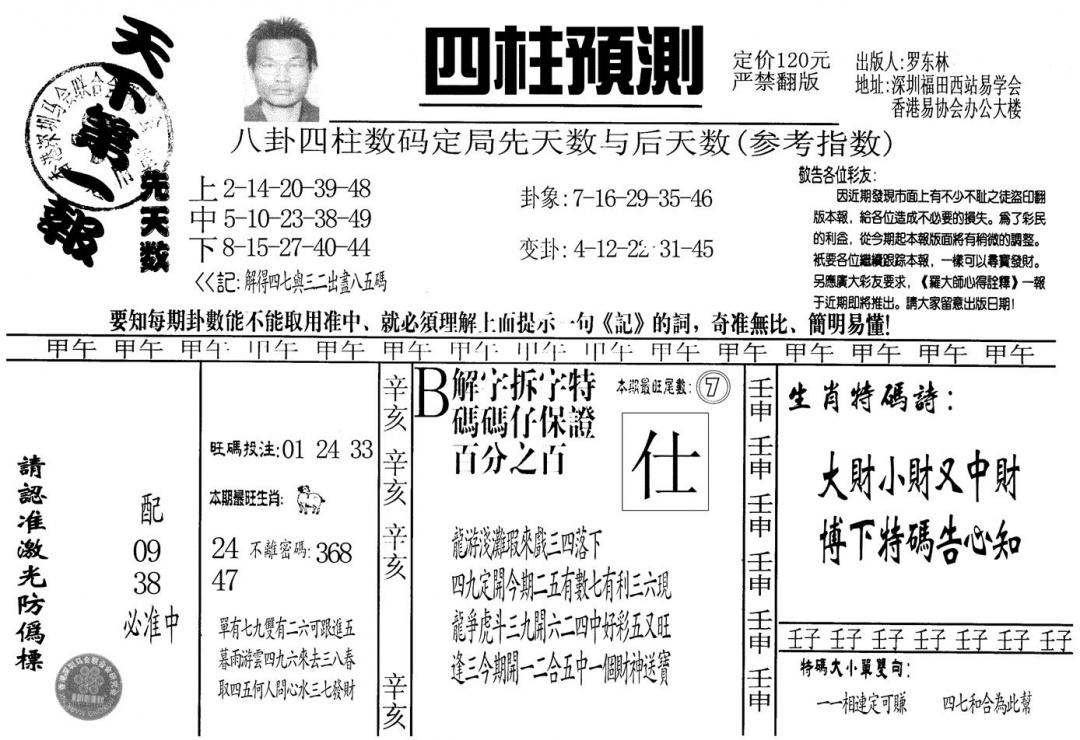 天下第一報
四柱預測
定价120元
严禁翻版
出版人:罗东林
地址:深圳福田西站易学会
香港易协会办公大楼
八卦四柱数码定局先天数与后天数(参考指数)
先天数
上2-14-20-39-48
中5-10-23-38-49
下8-15-27-40-44
<<記:解得四七與三二出盡八五碼
卦象:7-16-29-35-46
变卦:4-12-22-31-45
敬告各位彩友:
因近期發現市面上有不少不恥之徒盜印翻
版本報，給各位造成不必要的損失。爲了彩民
的利益，從今期起本報版面將有稍微的調整。
祇要各位繼續跟踪本報，一樣可以尋寶發財。
另應廣大彩友要求，《羅大師心得詮釋》一報
于近期即將推出。請大家留意出版日期!
要知每期卦數能不能取用准中、就必須理解上面提示一句《記》的詞，奇准無比、簡明易懂!
甲午 甲午 甲午 甲午 甲午 甲午 甲午 甲午 甲午 甲午 甲午 甲午 甲午 甲午 甲午
請認准激光防僞標
配
09
38
必准中
旺碼投注:01 24 33
本期最旺生肖:
24 不離密碼:368
47
單有七九雙有二六可跟進五
暮雨游雲四九六來去三八春
取四五何人問心水三七發財
辛亥
辛亥
辛亥
辛亥
B解字拆字特
碼碼仔保證
百分之百
本期最旺尾數:7
仕
龍游淺灘瑕來戲三四落下
四九定開今期二五有數七有利三六現
龍爭虎斗三九開六二四中好彩五又旺
逢三今期開一二合五中一個財神送寶
壬申
壬申
壬申
壬申
壬申
壬申
生肖特碼詩:
大財小財又中財
博下特碼告心知
壬子 壬子 壬子 壬子 壬子 壬子 壬子
特碼大小單雙句:
一一相連定可賺 四七和合為此幫